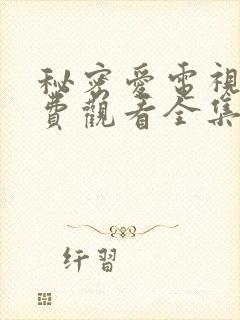 秘密愛電視
費觀看全集
纤習